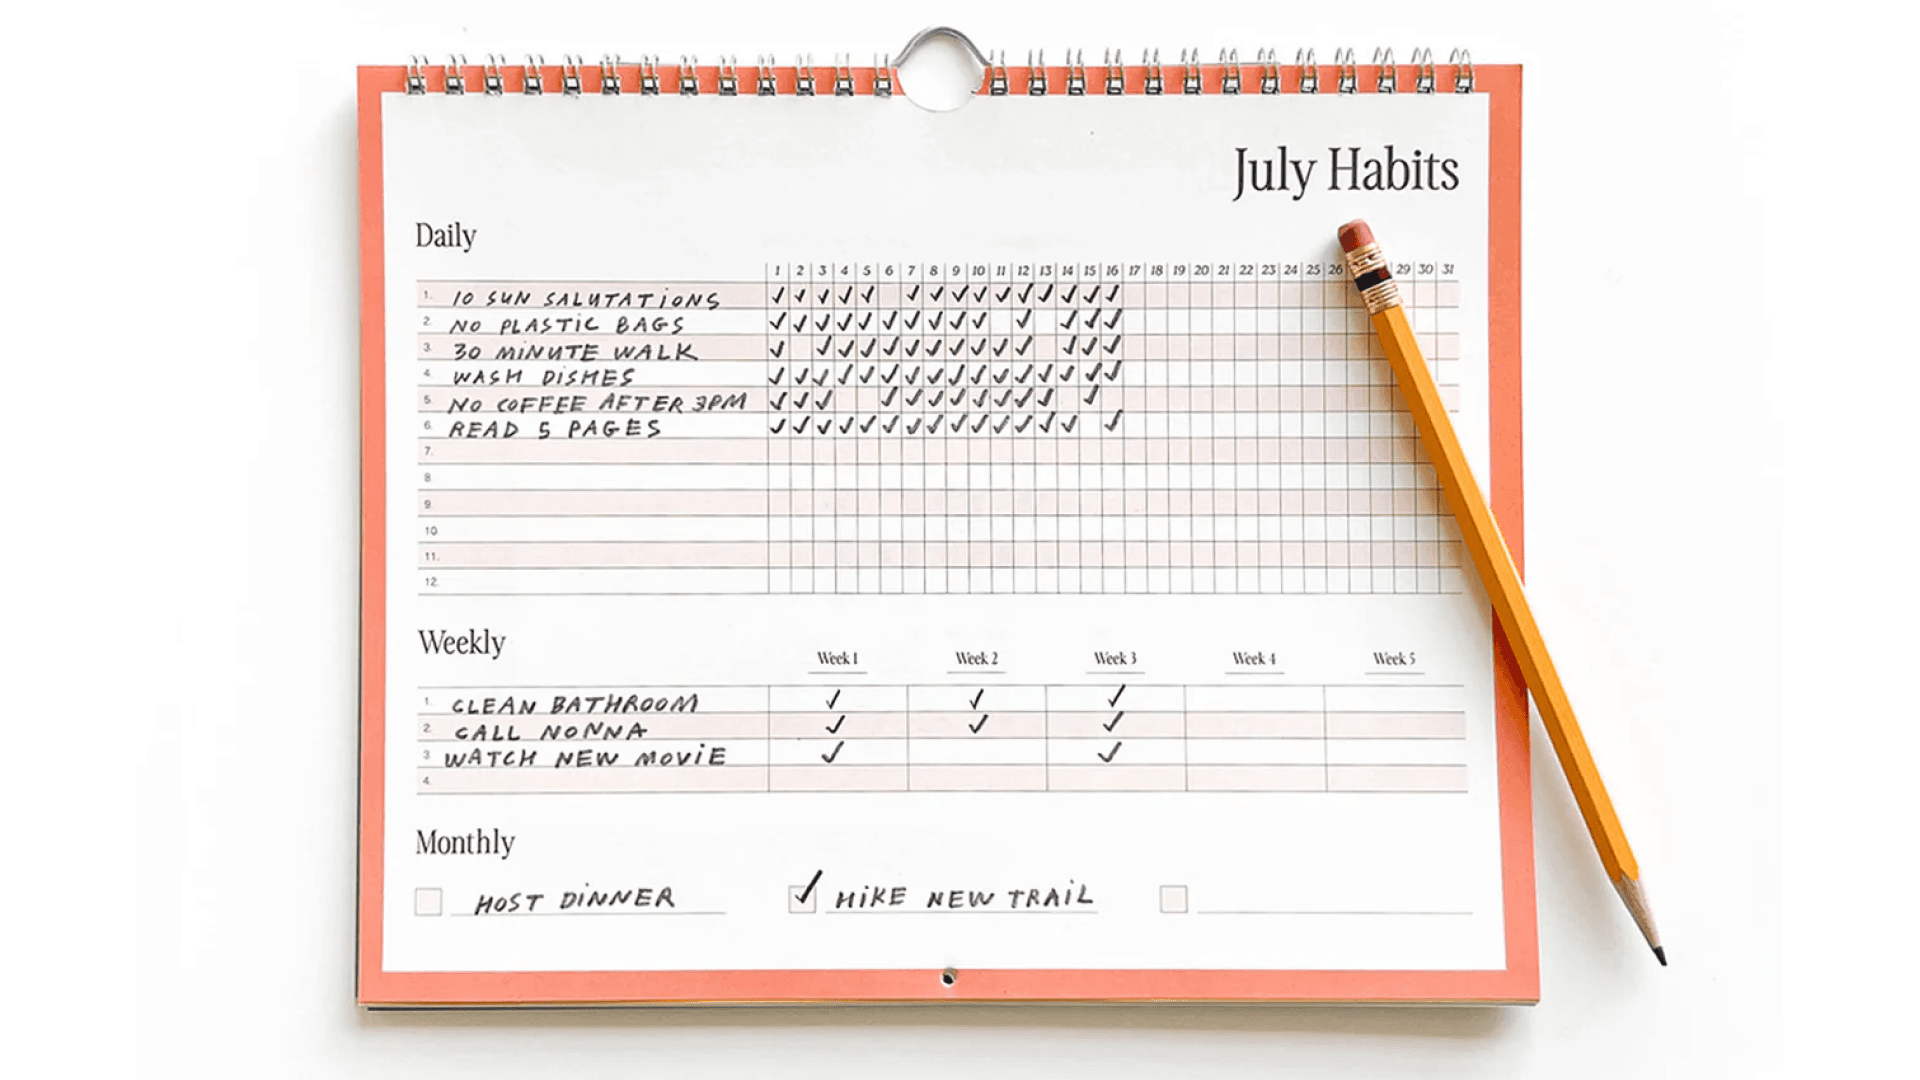 July Habits
Daily
1 2 3 4 5 6 7 8 9 10 11 12 13 14 15 16 17 18 19 20 21 22 23 24 25 26 29 30 31
1. 10 SUN SALUTATIONS ✓ ✓ ✓ ✓ ✓ ✓ ✓ ✓ ✓ ✓ ✓ ✓ ✓ ✓ ✓
2. NO PLASTIC BAGS ✓ ✓ ✓ ✓ ✓ ✓ ✓ ✓ ✓ ✓ ✓ ✓ ✓ ✓
3. 30 MINUTE WALK ✓ ✓ ✓ ✓ ✓ ✓ ✓ ✓ ✓ ✓ ✓ ✓ ✓ ✓
4. WASH DISHES ✓ ✓ ✓ ✓ ✓ ✓ ✓ ✓ ✓ ✓ ✓ ✓ ✓ ✓ ✓ ✓
5. NO COFFEE AFTER 3PM ✓ ✓ ✓ ✓ ✓ ✓ ✓ ✓ ✓ ✓ ✓ ✓
6. READ 5 PAGES ✓ ✓ ✓ ✓ ✓ ✓ ✓ ✓ ✓ ✓ ✓ ✓ ✓ ✓ ✓
7.
8
9.
10.
11.
12.
Weekly
Week 1 Week 2 Week 3 Week 4 Week 5
1. CLEAN BATHROOM ✓ ✓ ✓
2. CALL NONNA ✓ ✓ ✓
3 WATCH NEW MOVIE ✓ ✓
4.
Monthly
HOST DINNER ✓ HIKE NEW TRAIL